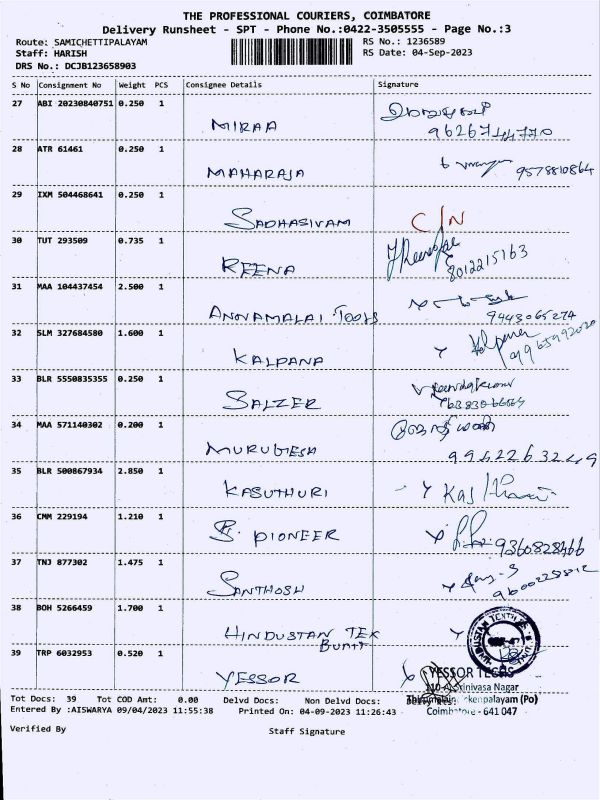 THE PROFESSIONAL COURIERS, COIMBATORE
Delivery Runsheet - SPT - Phone No.:0422-3505555 - Page No.:3
Route: SAMICHETTIPALAYAM RS No.: 1236589
Staff: HARISH RS Date: 04-Sep-2023
DRS No.: DCJB123658903
S No Consignment No Weight PCS Consignee Details Signature
27 ABI 20230840751 0.250 1
MIRAA 9626744770
28 ATR 61461 0.250 1
MAHARAJA 9578810864
29 IXM 504468641 0.250 1
SADHASIVAM C/N
30 TUT 293509 0.735 1
REENA 8012215163
31 MAA 104437454 2.500 1
ANNAMALAI TOOLS 9443065274
32 SLM 327684580 1.600 1
KALPANA Kalpana 9965992020
33 BLR 5550835355 0.250 1
SALZER
34 MAA 571140302 0.200 1
MURUGESH 9942263249
35 BLR 500867934 2.850 1
KASUTHURI
36 CMM 229194 1.210 1
S. PIONEER 9360828466
37 TNJ 877302 1.475 1
SANTHOSH 9600228812
38 BOH 5266459 1.700 1
HINDUSTAN TEK
BUNIT
39 TRP 6032953 0.520 1
YESSOR YESSOR TECHS
Srinivasa Nagar
Tot Docs: 39 Tot COD Amt: 0.00 Delvd Docs: Non Delvd Docs: (Po)
Entered By :AISWARYA 09/04/2023 11:55:38 Printed On: 04-09-2023 11:26:43 Coimbatore - 641 047
Verified By Staff Signature